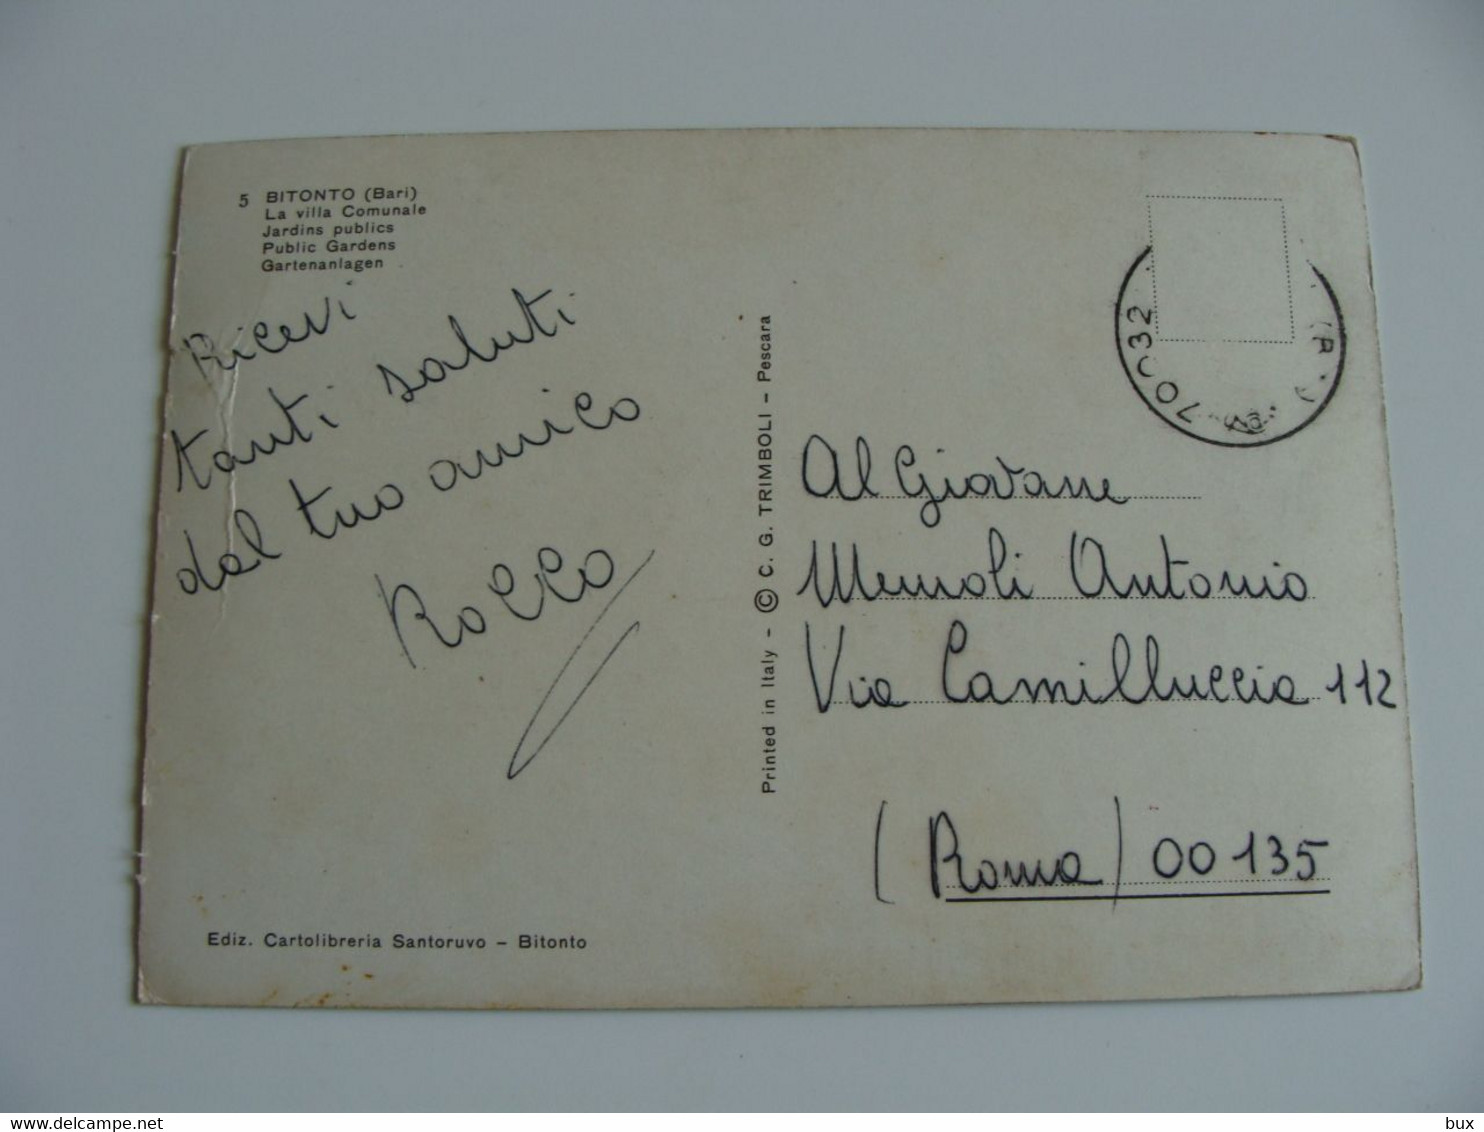 5 BITONTO (Bari)
La villa Comunale
Jardins publics
Public Gardens
Gartenanlagen
Ricevi
tanti saluti
dal tuo amico
Rocco
Ediz. Cartolibreria Santoruvo – Bitonto
Printed in Italy - © C. G. TRIMBOLI - Pescara
70032
Al Giovane
Memoli Antonio
Via Camilluccia 112
(Roma) 00135
bux